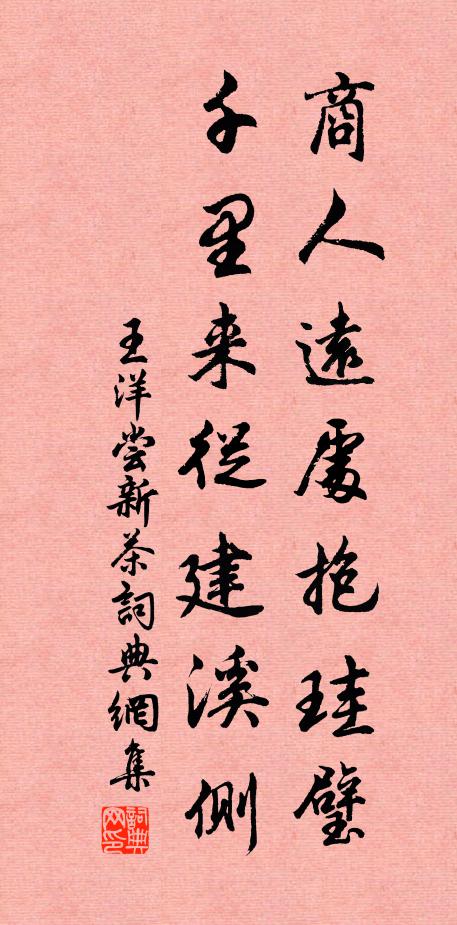 商人遠處抱珪璧
千里来從建溪側
王洋嘗新茶詞典網集
詞典网印